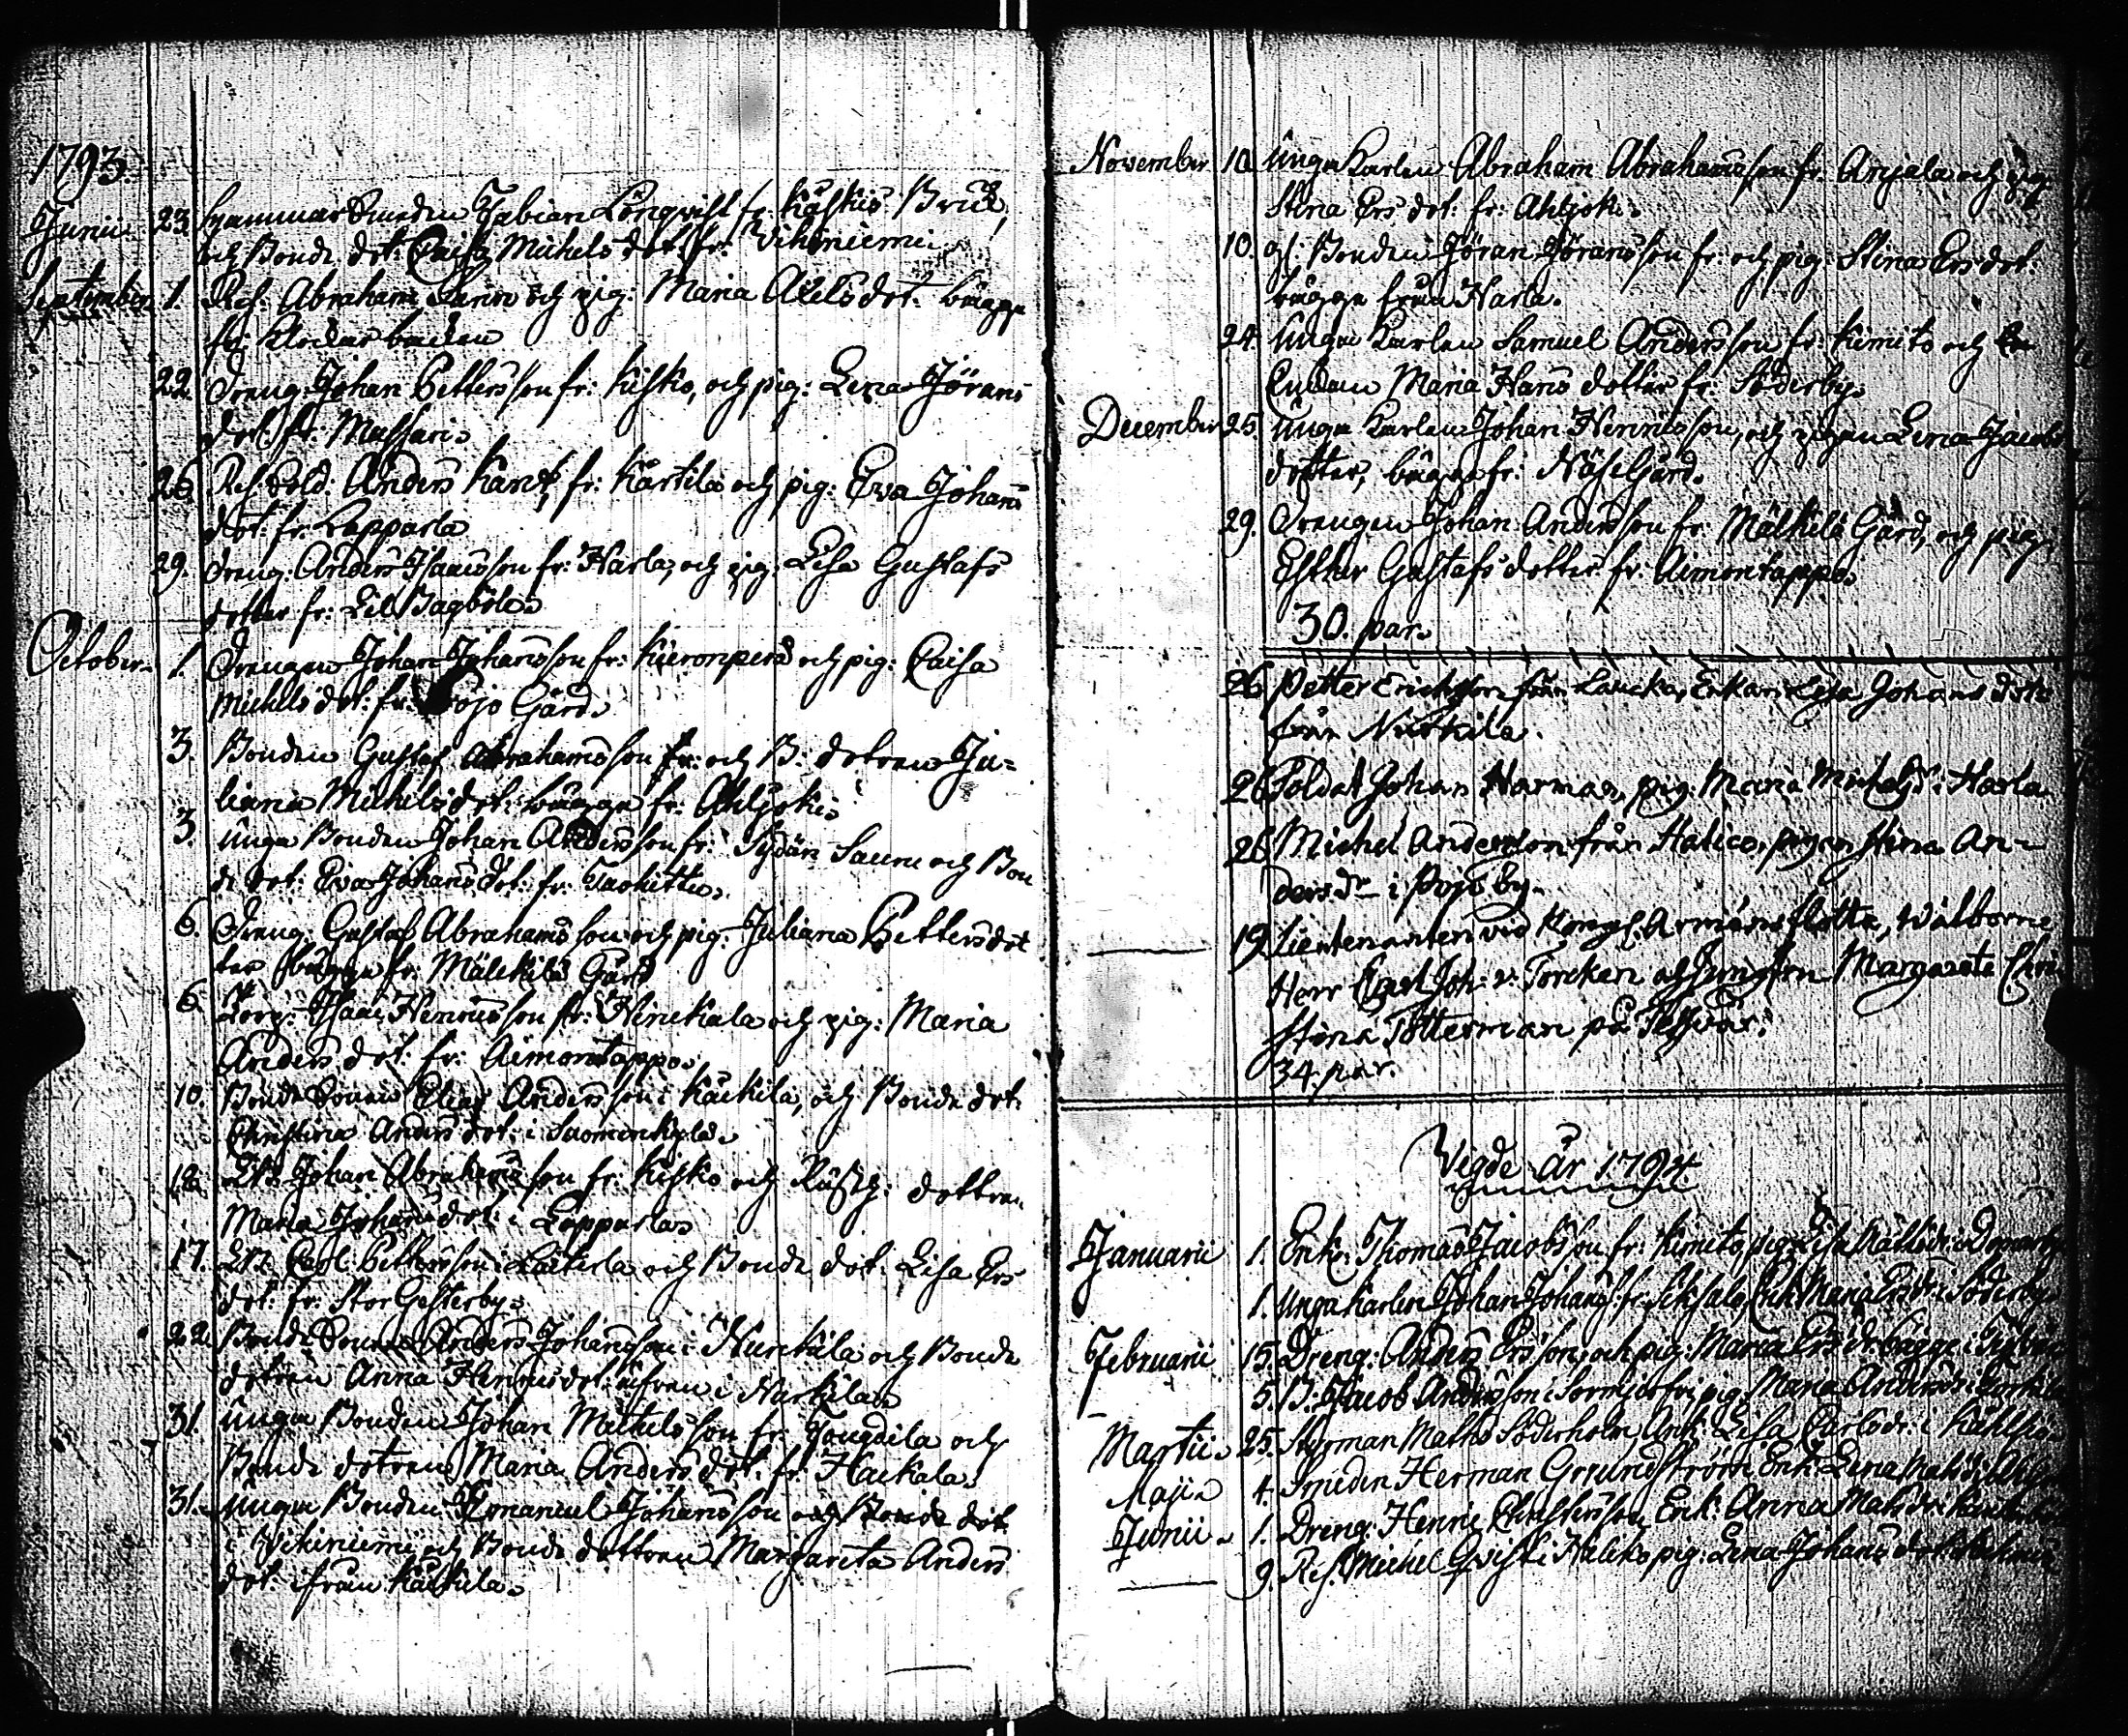 1793.
Junii 23. hammar Smeden Fabian Lönqvist fr: Koskis Bruk,
och Bonde dot: Caisa Michels dot: fr: Vihiniemi
September 1. Res: Abraham och pig: Maria Axels dot: bägge
fr: Klockar backen
22. Dreng: Johan Pettersson fr: Kisko, och pig: Lena Jörans
dot: fr: Massari.
26. Res Sold: Anders fr: Kärkila och pig: Eva Johans
dot: fr: Lapparla
29. Dreng: Anders Isaacsson fr: Harla, och pig: Lisa Gustafs
dotter fr: Lill Bagböle.
October 1. Drengen Johan Johansson fr: Kieronperä och pig: Caisa
Michels dot: fr: Pojo Gård.
3. Bonden Gustaf Abrahamsson fr: och B: dotren Ju=
liana Michels dot: bägge fr: Ahljoki.
3. Unga Bonden Johan Andersson fr: Sydän Sauru och Bon
de dot: Eva Johans dot: fr:
6. Dreng: Gustaf Abrahamsson och pig: Juliana Petters dot
ter bägge fr: Mälkilä Gård
6. Torp: Isaac Henricsson fr: och pig: Maria
Anders dot: fr: Aimontappo.
10. Bonde Sonen Elias Andersson i Kaukila, och Bonde dot:
Christina Anders dot: i Suomenkylä.
12. Johan Abrahamsson fr: Kisko och Rusth: dottren
Maria Johans dot: i Lapparla.
17. Carl Pettersson i och Bonde dot: Lisa Ers
dot: fr: Stor Gesterby.
22. Bonde Sonen Anders Johansson i Nurkkila och Bonde
dotren Anna Henrics dot: ifrån i Nurkila.
31. Unga Bonden Johan Michelsson fr: och
Bonde dotren Maria Anders dot: fr: Haukala.
31. Unga Bonden Emanuel Johansson och Bonde dot:
i Vihiniemi och Bonde dottren Margareta Anders
dot: ifrån Kaukila.
November 10. Unga Karlen Abraham Abrahamsson fr: Anjala och pig
Stina Ers dot: fr: Ahljoki.
10. Bonden Jöran Jöransson fr: och pig: Stina Ers dot:
bägge från Harla.
24. Unga Karlen Samuel Andersson fr: Kimito och En
Enkan Maria Hans dotter fr: Söderby.
December 25. Unga Karlen Johan Henricsson, och pigan Lena Jacobs
dotter, bägge fr: Näsegård.
29. Drengen Johan Andersson fr: Mälkilä Gård, och pig:
Esther Gustafs dotter fr: Aimontappo.
30. par.
26 Petter Erichsson från Enkan Lisa Johans dotr
från Nurkila.
26 Soldat Johan Harman, pig: Maria Michelsdr: Harla
26 Michel Andersson från Halico, pigan Stina An-
dersdr i Pojo by.
19 Lieutenanten vid Kongl: Arméns flotta, Wälborne
Herr Carl Joh: v: Torcken och Jungfru Margareta Chri
stina Totterman på
34. par.
Vigde år 1794.
Januarii 1. Enk: Thomas Jacobsson fr: Kimito, pig: Lisa
1. Unga Karlen Johan Johanss: fr: Enk: Maria Ersdr: i Söderby
Februarii 15. Dreng: Anders Ersson, och pig: Maria Ers dr: bägge i
5. B: Jacob Andersson i pig: Maria Andersdr:
Martii 25. Styrman Mathis Söderholm, Enk: Lisa Carlsdr: i
Maji 4. Smeden Herman Grundström Enk: Lena
Junii 1. Dreng: Henric Christersson, Enk: Anna Matsdr:
9. Res. Michel Qvist i Haliko pig: Lena Johans dotr: